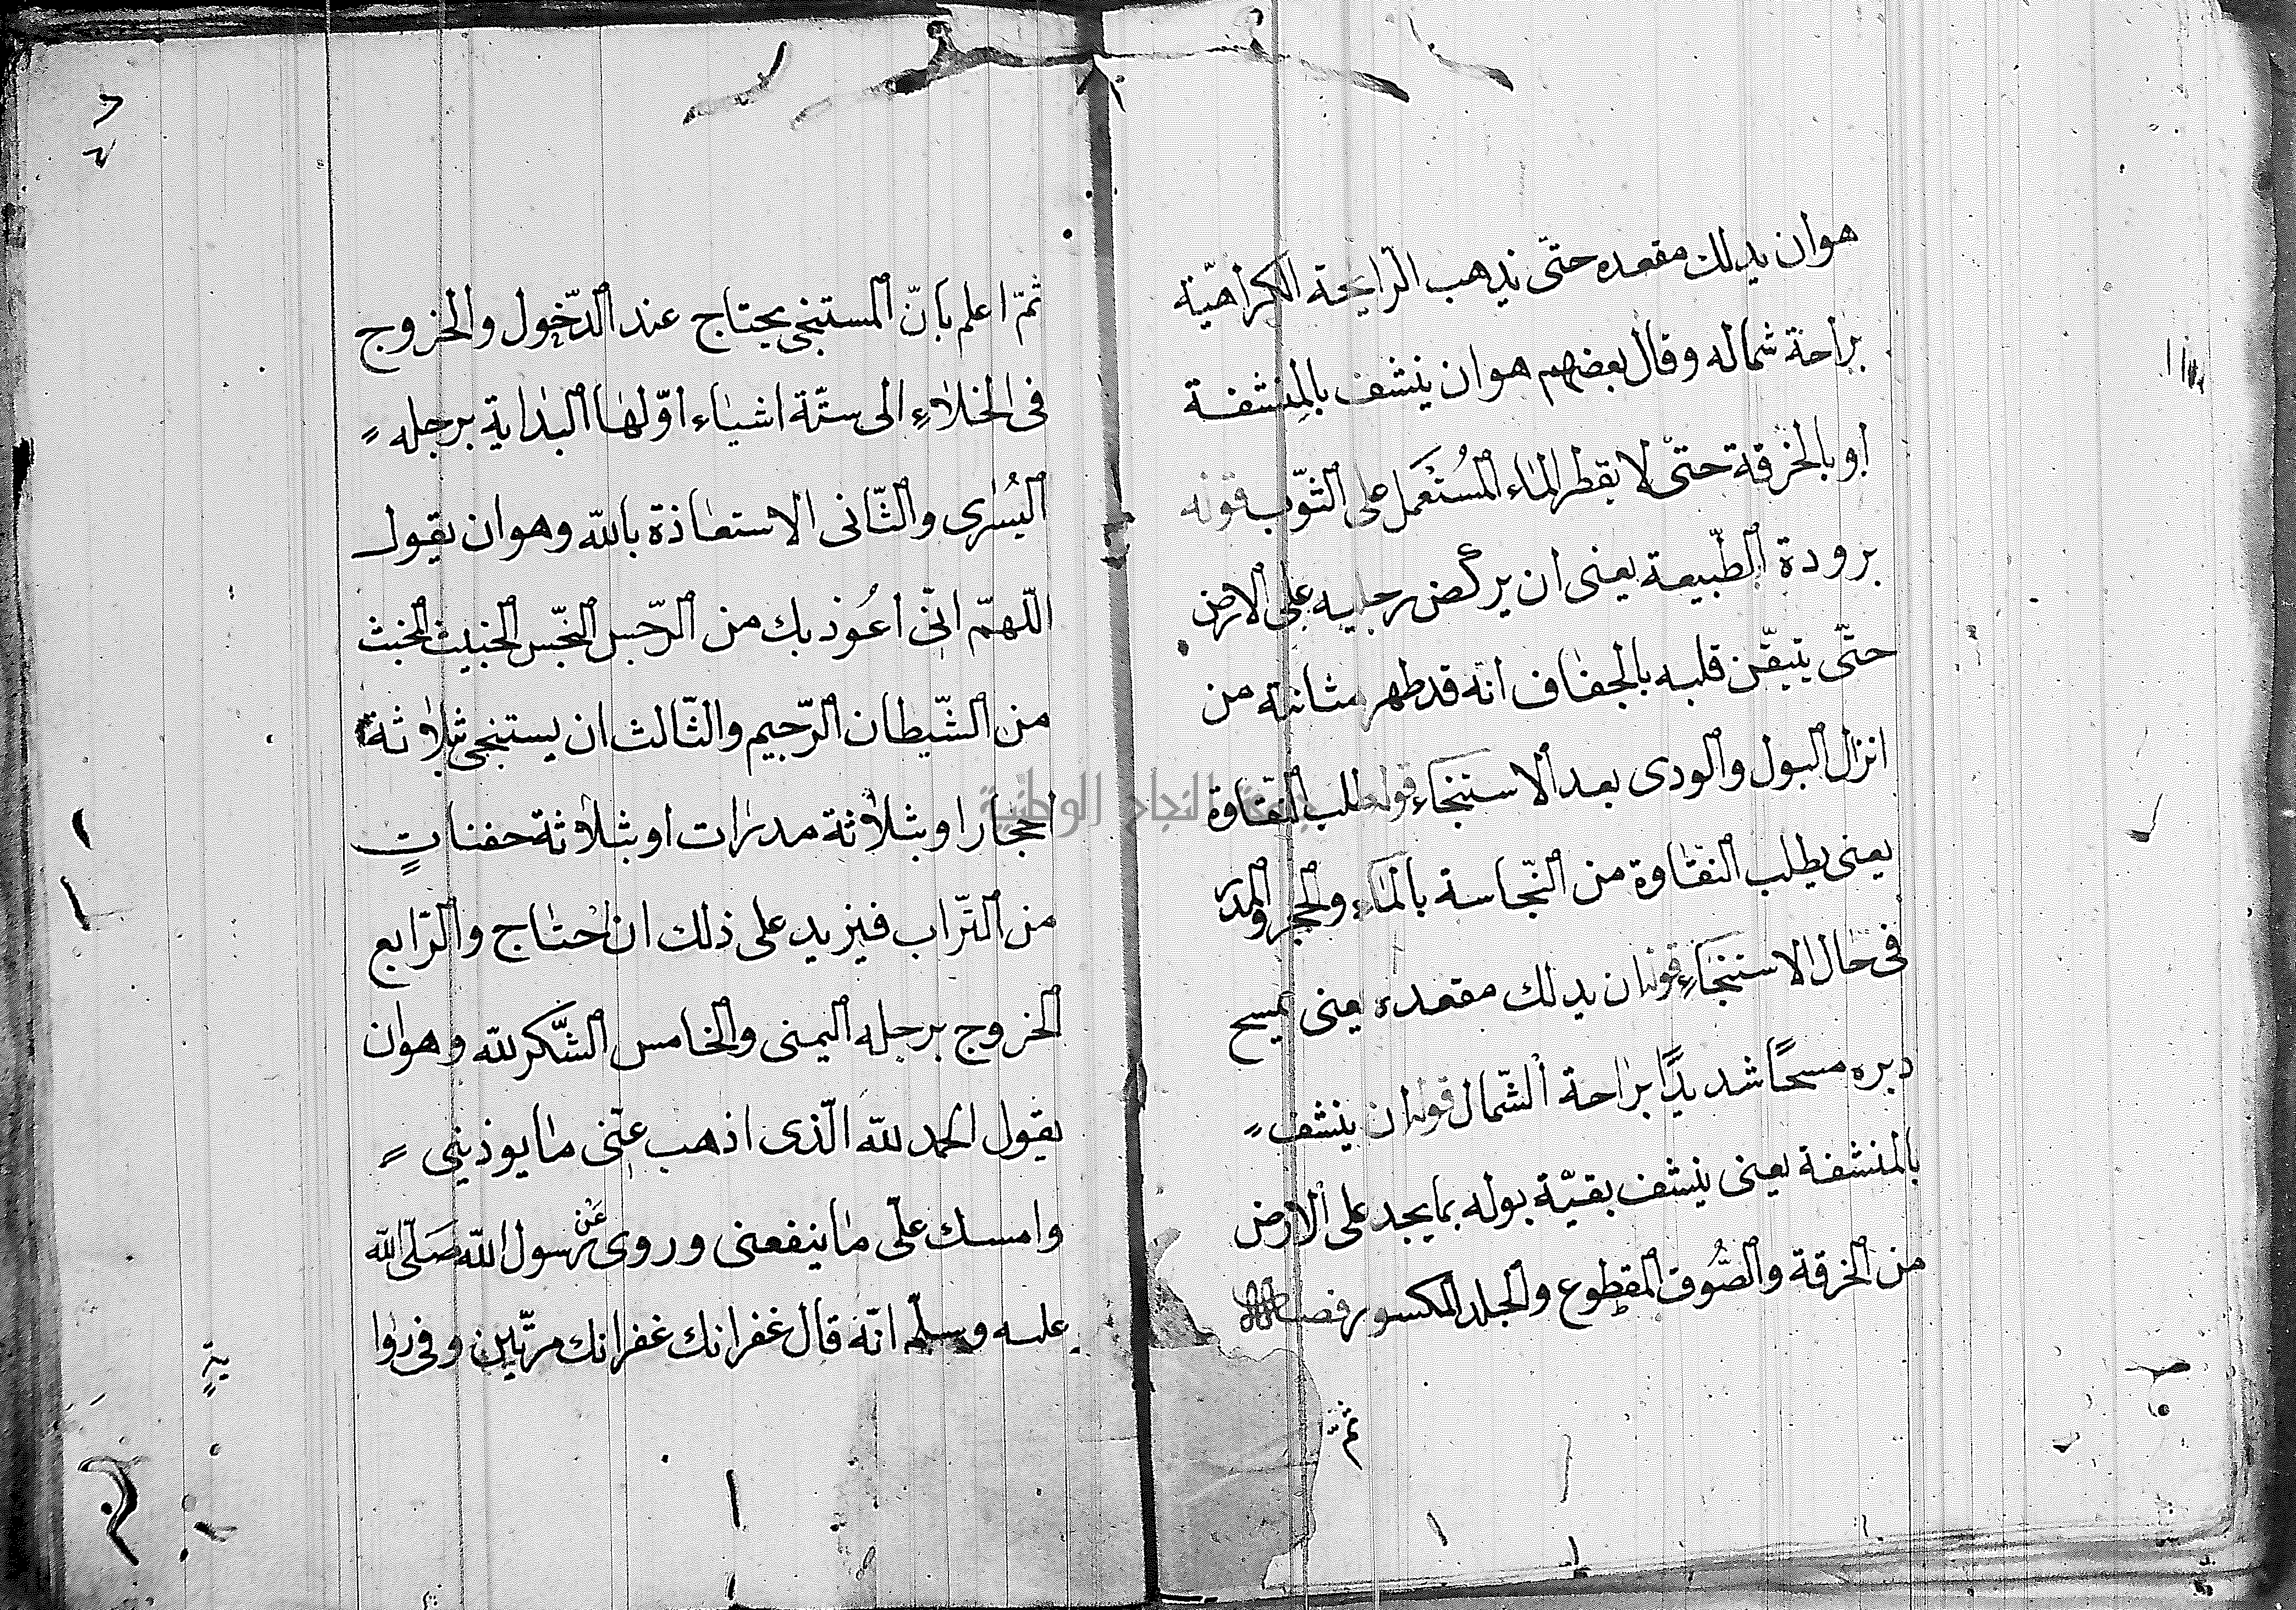 هو ان يدلك مقعده حتّى يذهب الرايحة الكراهيّة
براحة شماله وقال بعضهم هو ان ينشف بالمنشفة
او بالخرقة حتّى لا يقطر الماء المُسْتَعمل على الثّوب قوله
برودة الطّبيعة يعنى ان يركض رجليه على الارض
حتّى يتيقّن قلبه بالجفاف انّه قد طهر مثانته من
انزال البول والودى بعد الاستنجاء قوله طلب النقاوة
يعنى يطلب النقاوة من النّجاسة بالماء والحجر والمدر
فى حال الاستنجاءِ قوله ان يدلك مقعده يعنى يمسح
دبره مسحًا شديدًا براحة الشّمال قوله ان ينشف
بالمنشفة يعنى ينشف بقيّة بوله بما يجد على الارض
من الخرقة والصُّوف المقطوع والجلد المكسور فصل
ثمّ
ثمّ اعلم بانّ المستنجى يحتاج عند الدّخول والخروج
فى الخلاءِ الى ستّة اشياء اوّلها البداية برجله
اليُسْرى والثّانى الاستعاذة بالله وهو ان يقول
اللّهمّ انّى اعُوذ بك من الرّجس النّجس الخبيث المخبث
من الشّيطان الرّجيم والثّالث ان يستنجى بثلاثة
احجار او بثلاثة مدرات او بثلاثة حفناتٍ
من التّراب فيزيد على ذلك ان احتاج والرّابع
الخروج برجله اليمنى والخامس الشّكر لله وهو ان
يقول الحمد لله الّذى اذهب عنّى ما يوذينى
وامسك علىّ ما ينفعنى وروى عَنْ رسول الله صَلّى الله
عليه وسلّم انّه قال غفرانك غفرانك مرّتين وفى روا
يةٍ
جامعة النجاح الوطنية